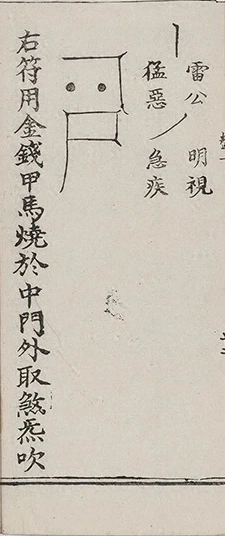 雷公　明視
猛惡　急疾
右符用金錢甲馬燒於中門外取煞炁吹